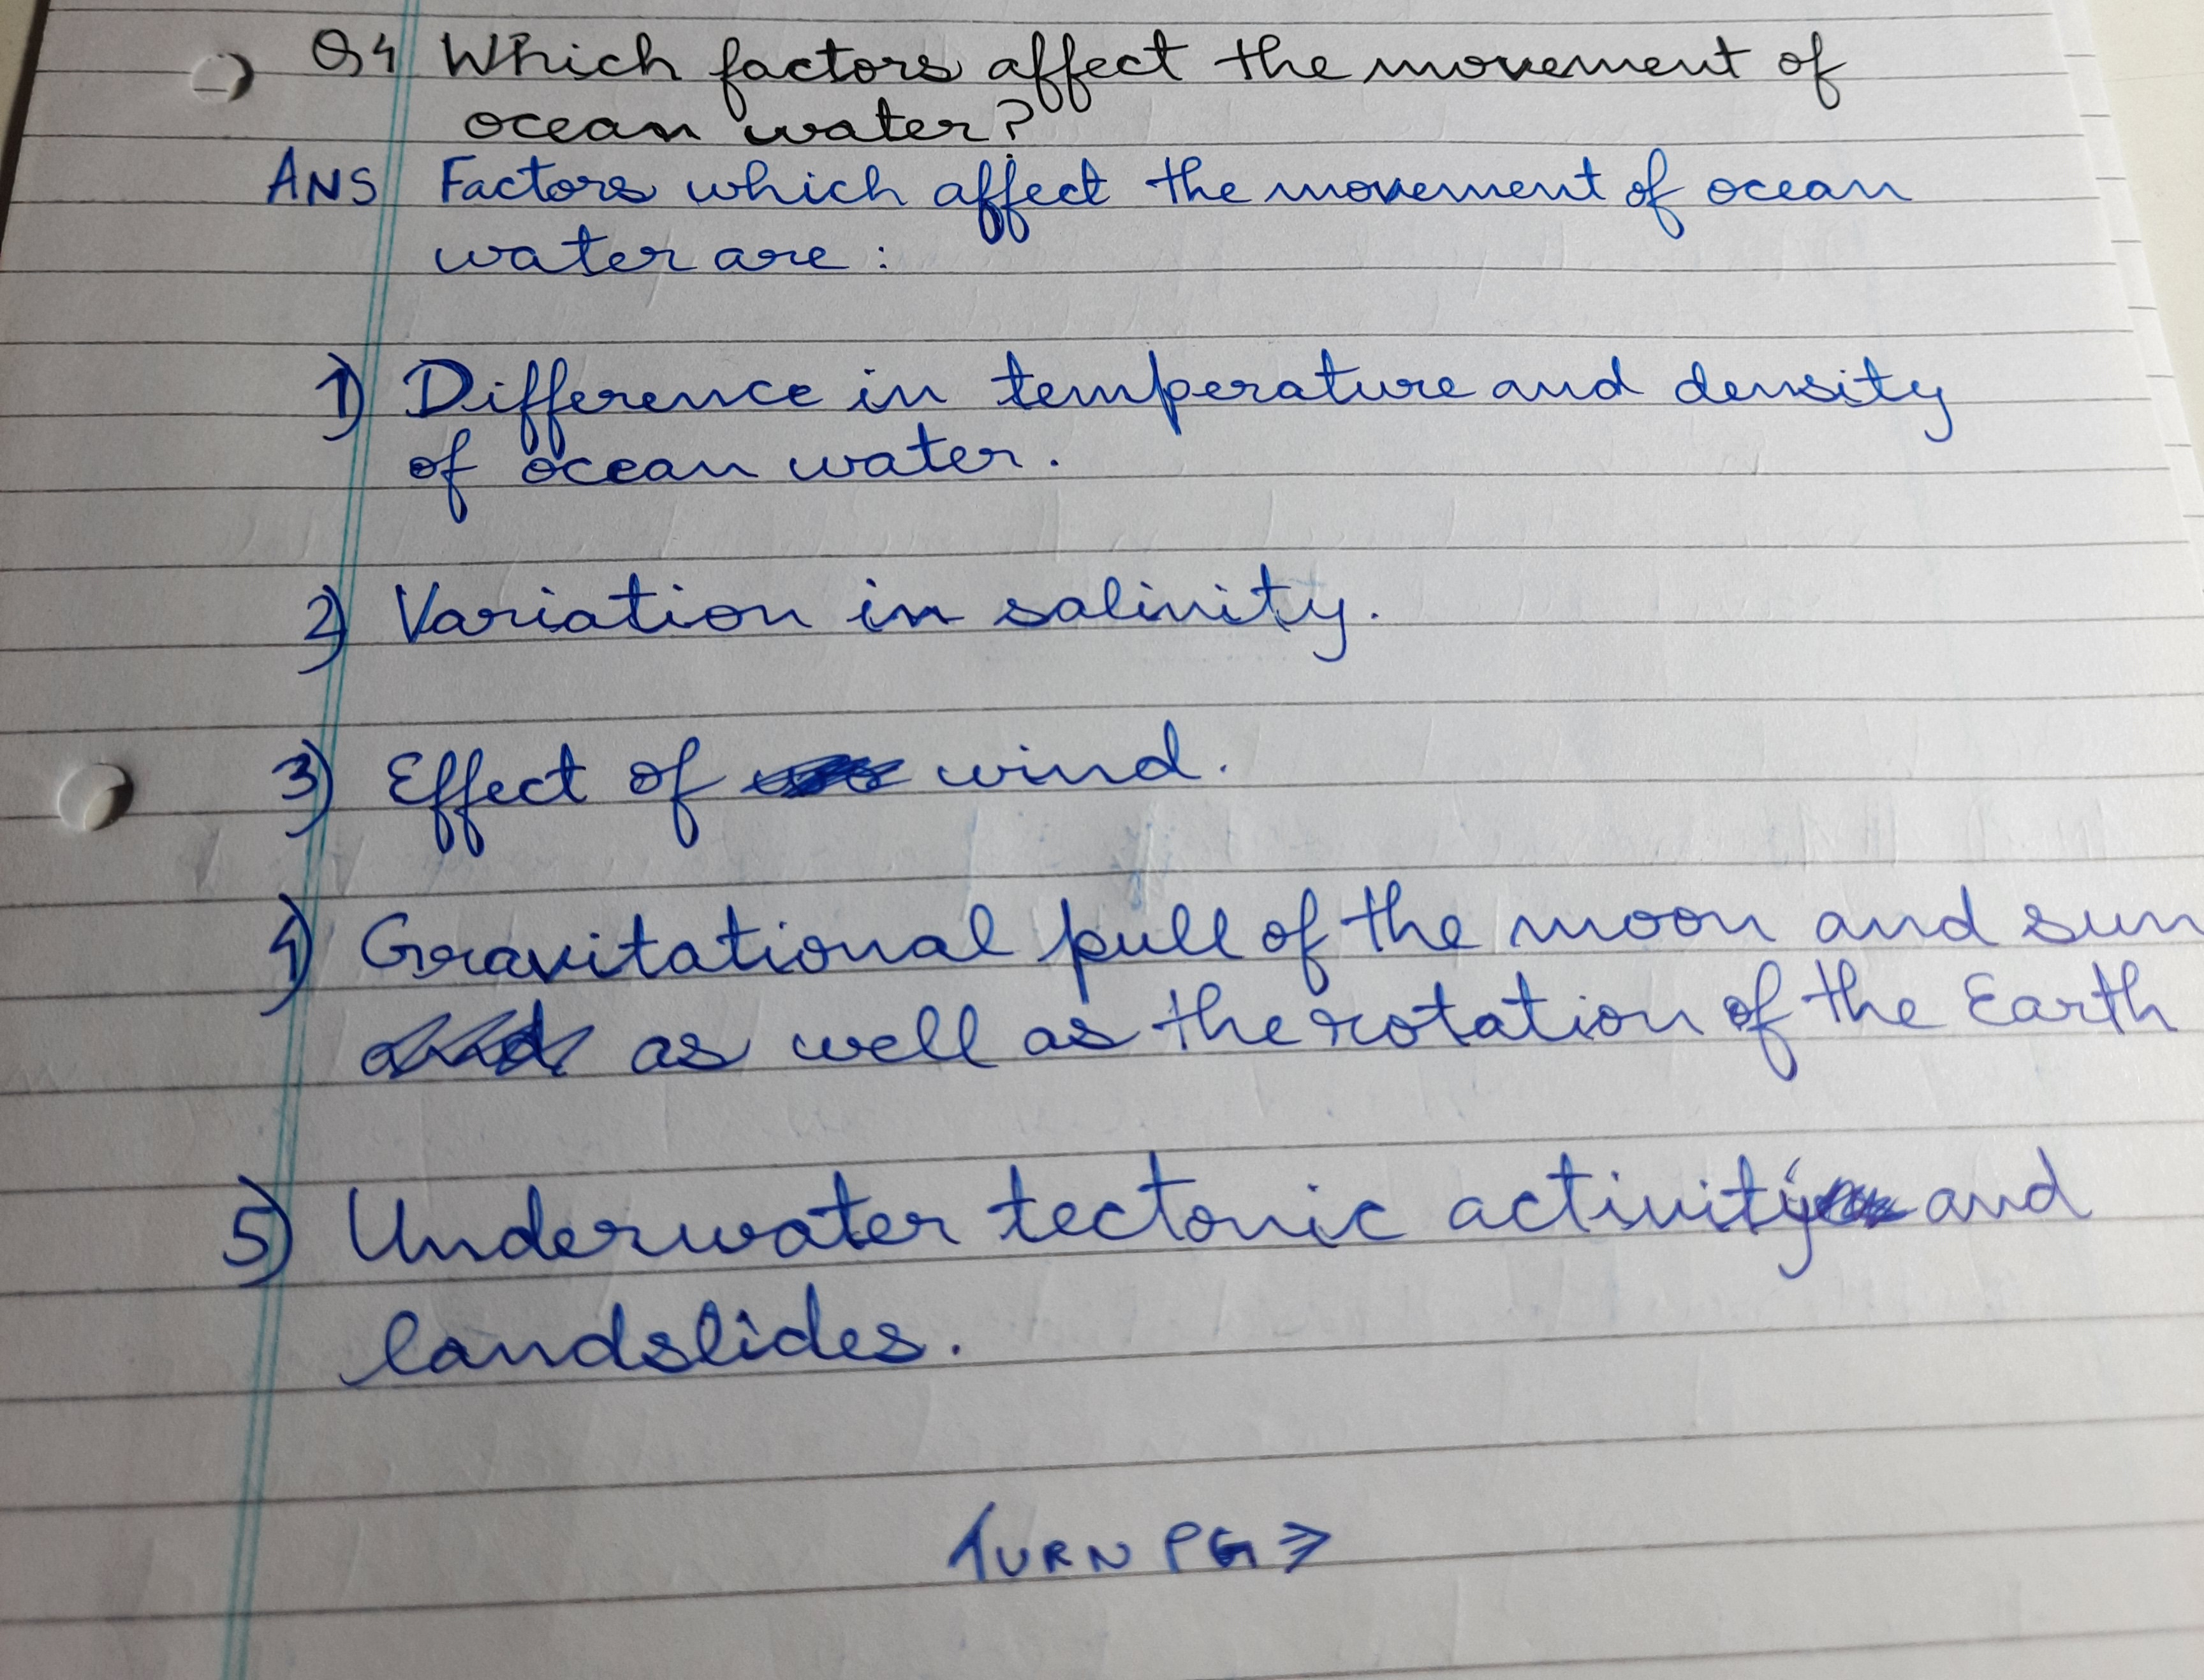 Q4 Which factors affect the movement of
ocean water?
ANS Factors which affect the movement of ocean
water are :
1) Difference in temperature and density
of ocean water.
2) Variation in salinity.
3) Effect of wind.
4) Gravitational pull of the moon and sun
as well as the rotation of the Earth
5) Underwater tectonic activity and
landslides.
TURN PG >